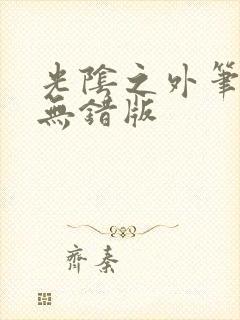 光陰之外筆
無錯版
齊秦